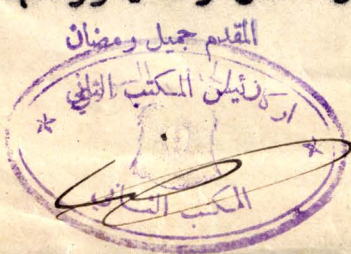 المقدم جميل رمضان
رئيس المكتب الثاني
المكتب الثاني